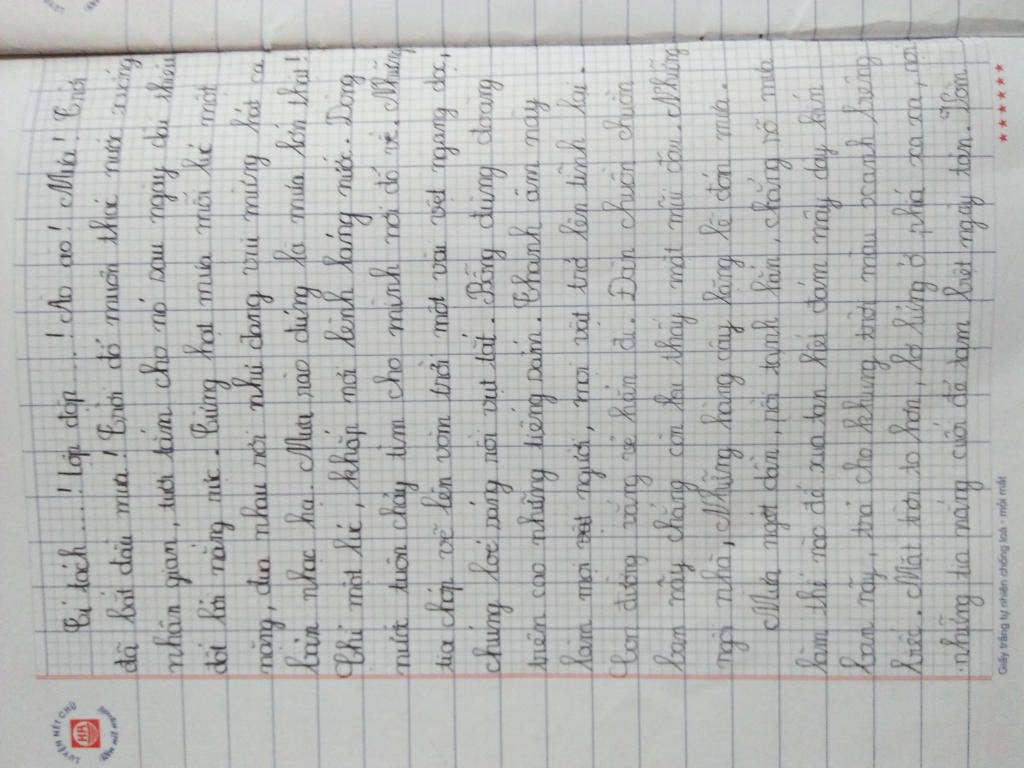 Tí tách.....! lộp độp.....! Ào ào! Mưa! Trời
đã bắt đầu mưa! Trời đó muôn thác nước xuống
nhân gian, tưới tắm cho nó sau ngày dài thiêu
đốt bởi nắng nực. Từng hạt mưa mỗi lúc một
nặng, đua nhau rơi như đang vui mừng hát ca
bản nhạc hạ. Mưa rào đúng là mưa lớn thật!
Chỉ một lúc, khắp nơi lênh láng nước. Dòng
nước tuôn chảy tìm cho mình nơi đổ về. Những
tia chớp vẽ lên vòm trời một vài vệt ngang dọc,
chúng loé sáng rồi vụt tắt. Bỗng đùng đoàng
trên cao những tiếng sấm. Thanh âm này
làm mọi vật người, mọi vật trở lên tĩnh lại.
Con đường vắng vẻ hẳn đi. Đàn chuồn chuồn
ban nãy chẳng còn lưu thấy một mũi đâu. Những
ngôi nhà, những hàng cây lặng lẽ đón mưa.
Mưa ngớt dần, rồi tạnh hẳn, chẳng rõ mưa
làm thế nào để xua tan hết đám mây dày kín
ban nãy, trả cho khung trời màu xanh biếng
biếc. Mặt trời to hơn, lơ lửng ở phía xa xa, rọi
những tia nắng cuối để tạm biệt ngày tàn. Vòm
Giấy trắng tự nhiên chống loá - mỏi mắt
LUYỆN NÉT CHỮ
HH